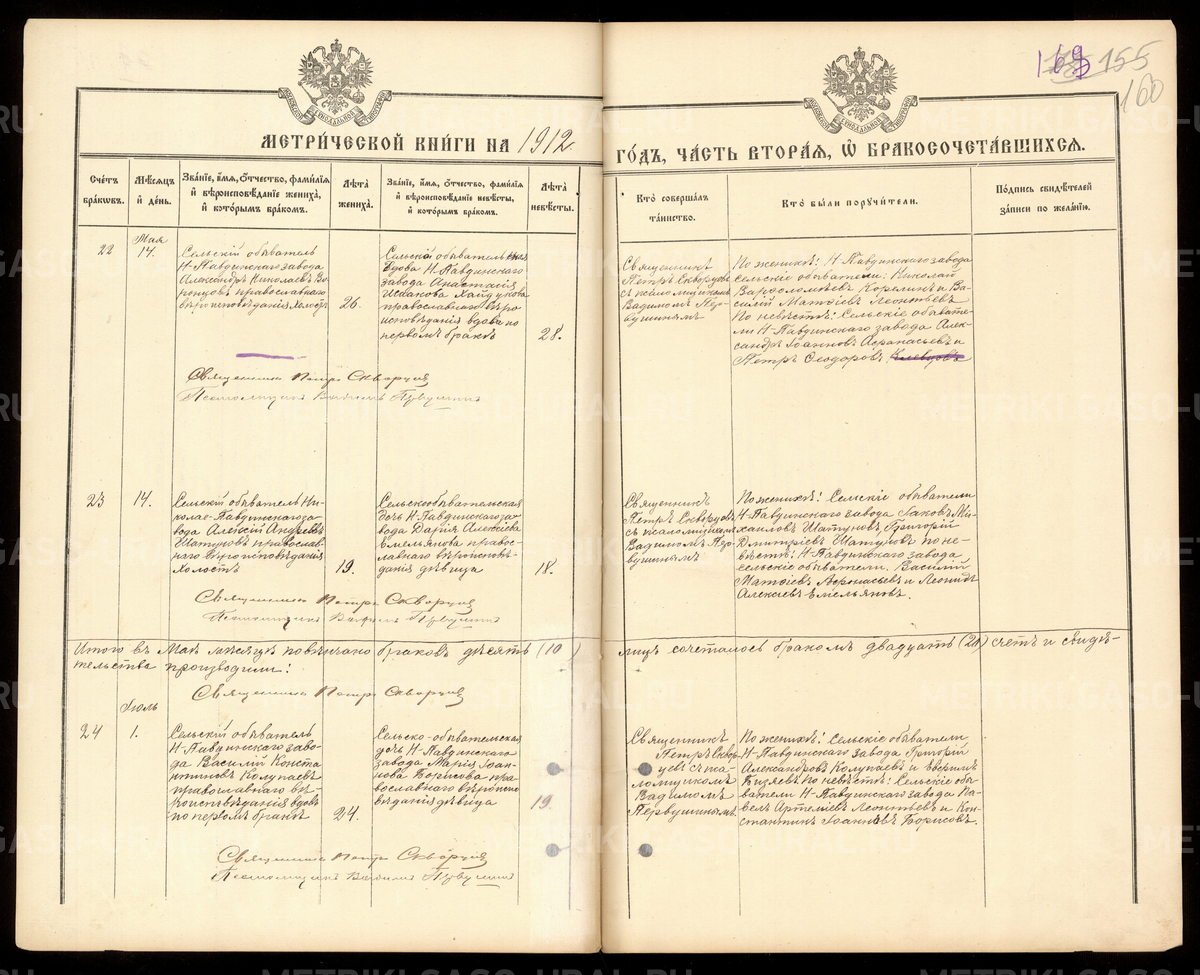 169 155
160
МЕТРИ́ЧЕСКОЙ КНИ́ГИ НА 1912
ГО́ДЪ, ЧА́СТЬ ВТОРА́Я, Ѽ БРАКОСОЧЕТА́ВШИХСЯ.
Сче́тъ
бра́ковъ.
Мѣ́сяцъ
и́ де́нь.
Зва́нїе, и́мя, ѻ́тчество, фами́лїя
и́ вѣроисповѣ́данїе жениха̀,
и́ кото́рымъ бра́комъ.
Лѣ́та
жениха̀.
Зва́нїе, и́мя, ѻ́тчество, фами́лїя
и́ вѣроисповѣ́данїе невѣ́сты,
и́ кото́рымъ бра́комъ.
Лѣ́та
невѣ́сты.
Кто̀ соверша́лъ
та́инство.
Кто̀ бы́ли поручи́тели.
По́дпись свидѣ́телей
за́писи по жела́нїю.
22
Мая
14.
Сельскій обыватель
Н-Павдинскаго завода
Александръ Николаевъ Во-
ронцовъ православнаго
вѣроисповѣданія холостъ
26.
Сельскаго обывателя
вдова Н-Павдинскаго
завода Анастасія
Исакова Хайдукова
православнаго вѣро
исповѣданія вдова по
первомъ бракѣ
28.
Священникъ
Петръ Скворцовъ
съ псаломщикомъ
Вадимомъ Пер-
вушинымъ
По женихѣ: Н-Павдинскаго завода
сельскіе обыватели: Николай
Варфоломеевъ Корелинъ и Ва-
силій Матѳіевъ Леонтьевъ
По невѣстѣ: Сельскіе обывате-
ли Н-Павдинскаго завода Алек-
сандръ Іоанновъ Аѳанасьевъ и
Петръ Ѳеодоровъ
Священникъ Петръ Скворцовъ
Псаломщикъ Вадимъ Первушинъ
23
14.
Сельскій обыватель Ни-
колае-Павдинскаго за-
вода Алексій Андреевъ
Шатуновъ православ-
наго вѣроисповѣданія
холостъ
19.
Сельскообывательская
дочь Н-Павдинскаго за-
вода Дарія Алексіева
Емельянова правос-
лавнаго вѣроисповѣ-
данія дѣвица
18.
Священникъ
Петръ Скворцовъ
съ псаломщикомъ
Вадимомъ Пер-
вушинымъ
По женихѣ: Сельскіе обыватели
Н-Павдинскаго завода Іаковъ Ми-
хаиловъ Шатуновъ Григорій
Дмитріевъ Шатуновъ По не-
вѣстѣ: Н-Павдинскаго завода
сельскіе обыватели. Василій
Матѳіевъ Аѳанасьевъ и Леонидъ
Алексіевъ Емельяновъ.
Священникъ Петръ Скворцовъ
Псаломщикъ Вадимъ Первушинъ
Итого въ Маѣ мѣсяцѣ повѣнчано браковъ десять (10)
лицъ сочеталось бракомъ двадцать (20) счетъ и свидѣ-
тельства производили:
Священникъ Петръ Скворцовъ
24
Іюль
1.
Сельскій обыватель
Н-Павдинскаго заво-
да Василій Конста
нтиновъ Колупаевъ
православнаго вѣ-
роисповѣданія вдовъ
по первомъ бракѣ
24.
Сельско-обывательская
дочь Н-Павдинскаго
завода Марія Іоан-
нова Борисова пра-
вославнаго вѣроиспо
вѣданія дѣвица
19.
Священникъ
Петръ Сквор-
цовъ съ пса-
ломщикомъ
Вадимомъ
Первушинымъ
По женихѣ: Сельскіе обыватели
Н-Павдинскаго завода Григорій
Александровъ Колупаевъ и
Бизяевъ По невѣстѣ: Сельскіе обы-
ватели Н-Павдинскаго завода Па-
велъ Артеміевъ Леонтьевъ и Кон-
стантинъ Іоанновъ Борисовъ.
Священникъ Петръ Скворцовъ
Псаломщикъ Вадимъ Первушинъ
METRIKI.GASO-URAL.RU